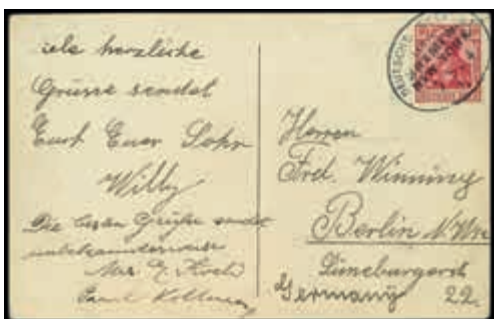 iele herzliche
Grüsse sendet
Euch Euer Sohn
Willy
Die besten Grüße sendet
unbekannterweise
Paul
Herren
Fred. Winning
Berlin N.W.
Lüneburgerst
Germany 22.
DEUTSCHE
NEW YORK